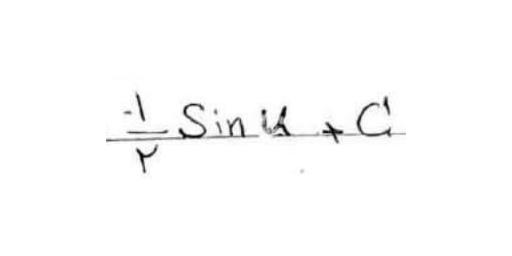 -1/۲ Sin u + C